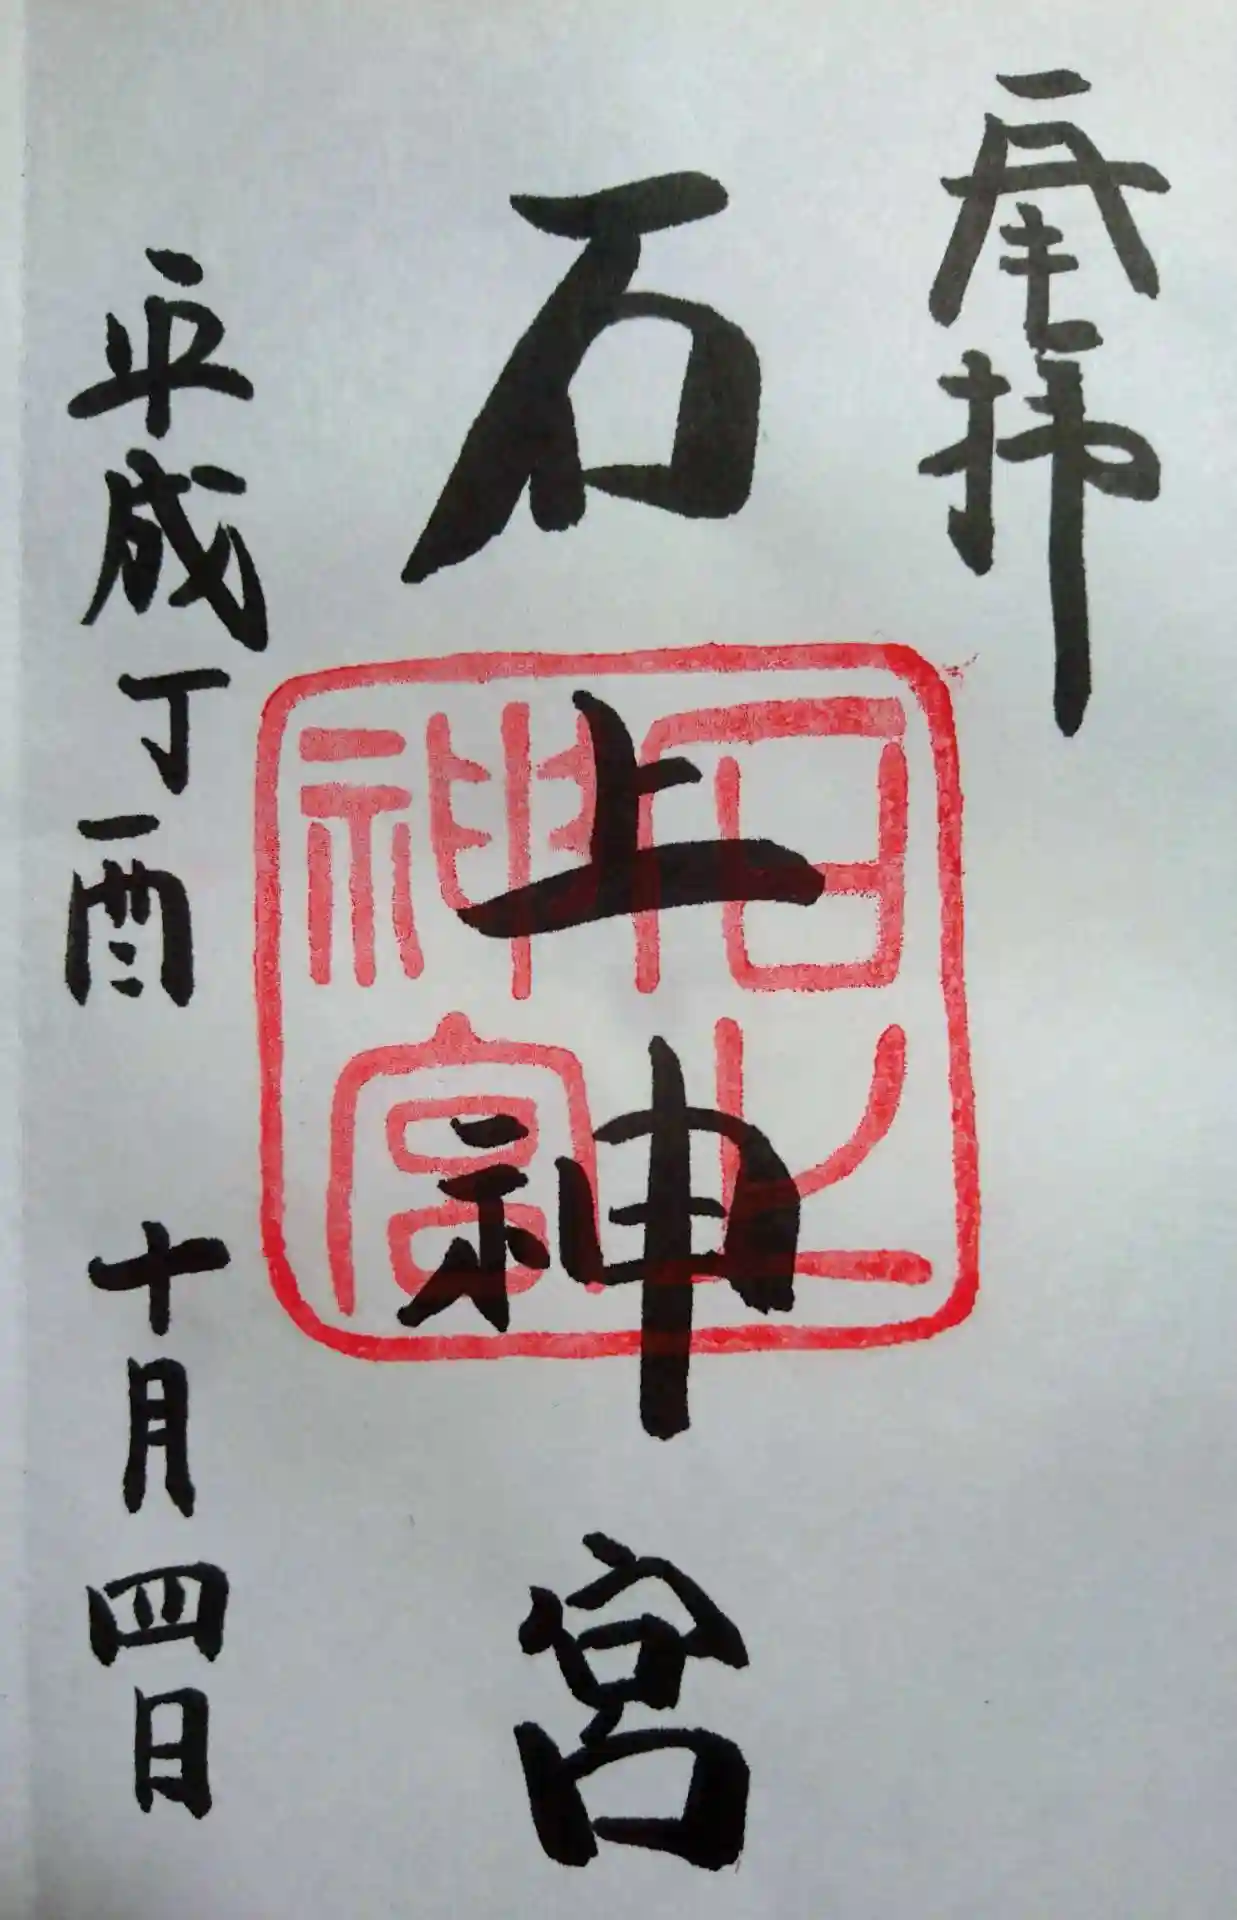 奉拝
石上神宮
石上神宮
平成丁酉 十月四日